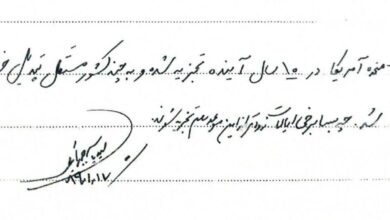 متحده آمریکا در ۱۵ سال آینده تجزیه شده و به چند کشور مستقل تبدیل خو
شد. چه بسا برخی ایالات زودتر از این موعد هم تجزیه شوند.